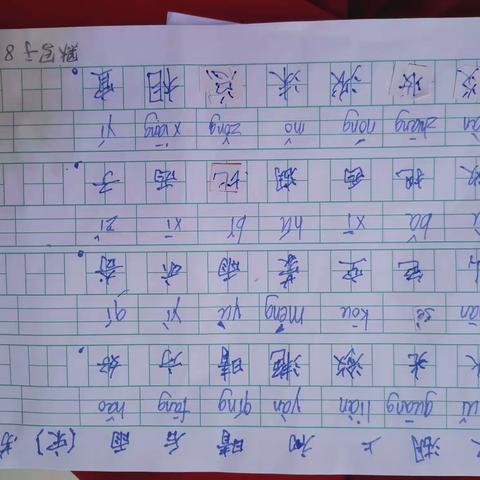 湖上初晴后雨 (宋)
guāng liàn yàn qíng fāng hǎo
光潋滟晴方好。
sè kōu méng yǔ yì qí
色空蒙雨亦奇。
bǎ xī hú bǐ xī zǐ
把西湖比西子。
zhuāng nóng mǒ zǒng xiāng yí
妆浓抹总相宜。
默写于8